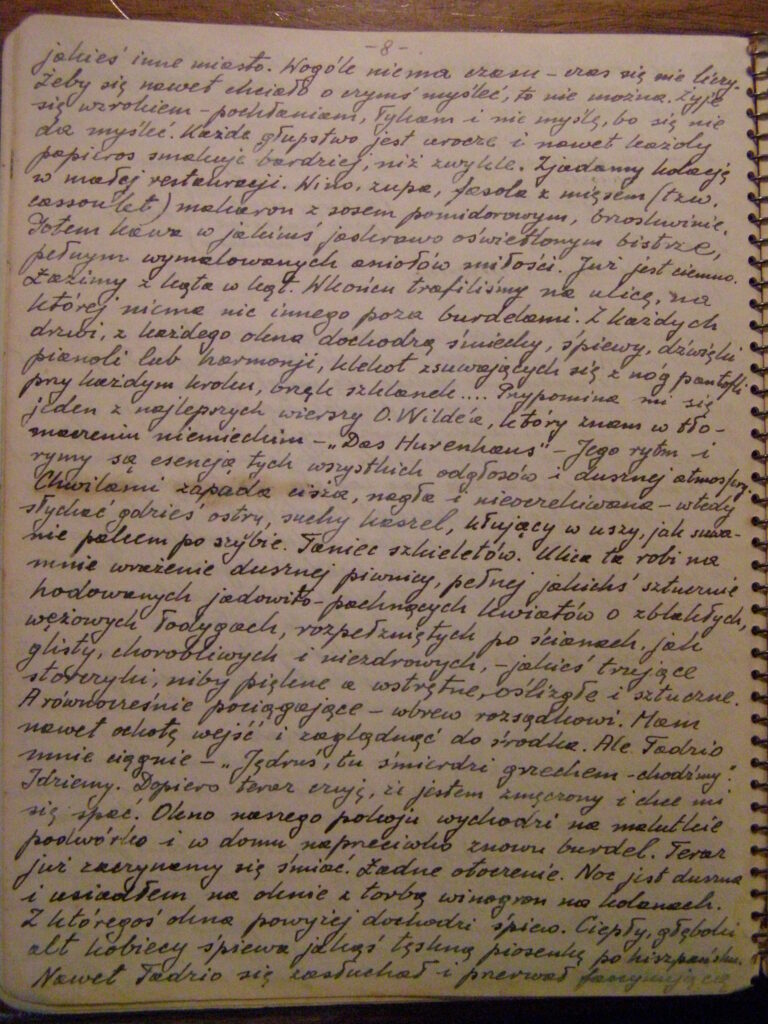 -8-
jakieś inne miasto. Wogóle niema czasu – czas się nie liczy.
Żeby się nawet chciało o czymś myśleć, to nie można. Żyje
się wzrokiem – pochłaniam, łykam i nie myślę, bo się nie
da myśleć. Każde głupstwo jest urocze i nawet każdy
papieros smakuje bardziej, niż zwykle. Zjadamy kolację
w małej restauracji. Wino, zupa, fasola z mięsem (tzw.
cassoulet) makaron z sosem pomidorowym, brzoskwinie.
Potem kawa w jakimś jaskrawo oświetlonym bistrze,
pełnym wymalowanych aniołów miłości. Już jest ciemno.
Łazimy z kąta w kąt. Wkońcu trafiliśmy na ulicę, na
której niema nic innego poza burdelami. Z każdych
drzwi, z każdego okna dochodzą śmiechy, śpiewy, dźwięki
pianoli lub harmonji, klekot zsuwających się z nóg pantofli
przy każdym kroku, brzęk szklanek.... Przypomina mi się
jeden z najlepszych wierszy O. Wilde'a, który znam w tło-
maczeniu niemieckim – „Das Hurenhaus" – Jego rytm i
rymy są esencją tych wszystkich odgłosów i dusznej atmosfery.
Chwilami zapada cisza, nagła i nieoczekiwana – wtedy
słychać gdzieś ostry, suchy kaszel, kłujący w uszy, jak suwa-
nie palcem po szybie. Taniec szkieletów. Ulica ta robi na
mnie wrażenie dusznej piwnicy, pełnej jakichś sztucznie
hodowanych jadowito-pachnących kwiatów o zbłakłych,
wężowych łodygach, rozpełzniętych po ścianach, jak
glisty, chorobliwych i niezdrowych, – jakieś trujące
storczyki, niby piękne a wstrętne, oślizgłe i sztuczne.
A równocześnie pociągające – wbrew rozsądkowi. Mam
nawet ochotę wejść i zaglądnąć do środka. Ale Tadzio
mnie ciągnie – „Jędruś, tu śmierdzi grzechem – chodźmy".
Idziemy. Dopiero teraz czuję, że jestem zmęczony i chce mi
się spać. Okno naszego pokoju wychodzi na malutkie
podwórko i w domu naprzeciwko znowu burdel. Teraz
już zaczynamy się śmiać. Ładne otoczenie. Noc jest duszna
i usiadłem na oknie z torbą winogron na kolanach.
Z któregoś okna powyżej dochodzi śpiew. Ciepły, głęboki
alt kobiecy śpiewa jakąś tęskną piosenkę po hiszpańsku.
Nawet Tadzio się zasłuchał i przerwał